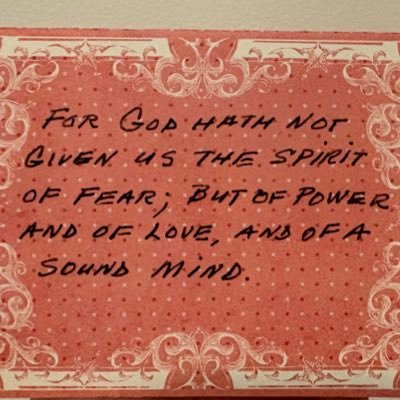 FOR GOD HATH NOT
GIVEN US THE SPIRIT
OF FEAR; BUT OF POWER
AND OF LOVE, AND OF A
SOUND MIND.